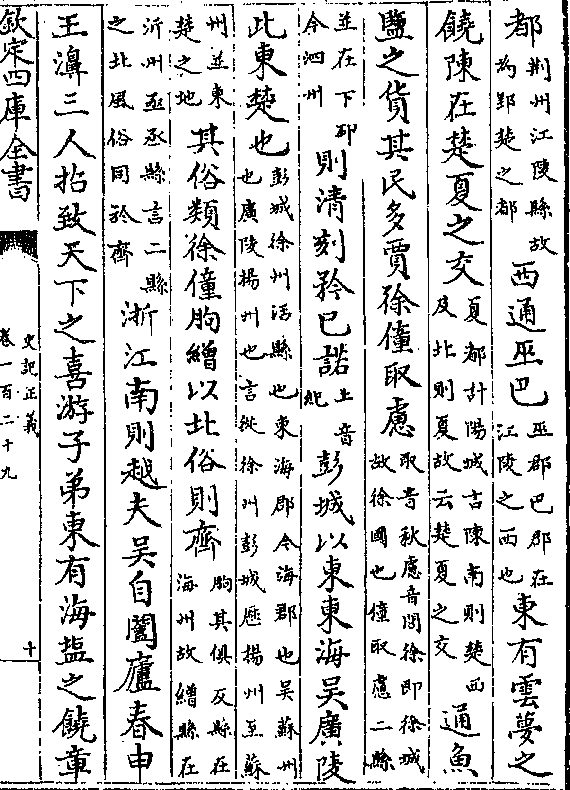 都荆州江陵縣故為郢楚之都西通巫巴巫郡巴郡在江陵之西也東有雲夢之
饒陳在楚夏之交夏都計陽城言陳南則楚西及北則夏故云楚夏之交通魚
鹽之貨其民多賈徐僮取慮取音秋慮音閭徐即徐城故徐國也僮取慮二縣
並在下邳今泗州則清刻矜已諾上音紀彭城以東東海吳廣陵
此東楚也彭城徐州治縣也東海郡今海郡也吳蘇州也廣陵揚州也言從徐州彭城歴揚州至蘇
州並東楚之地其俗類徐僮朐繒以北俗則齊朐其俱反縣在海州故繒縣在
沂州氶氶縣言二縣之北風俗同於齊浙江南則越夫吳自闔廬春申
王濞三人招致天下之喜游子弟東有海塩之饒章
欽定四庫全書
史記正義
卷一百二十九
十